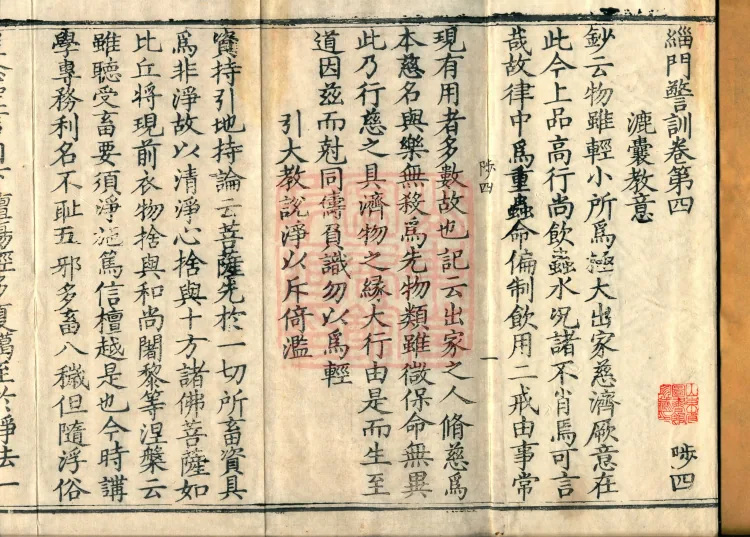 緇門警訓卷第四
陟四
漉囊教意
鈔云物雖輕小所為極大出家慈濟厥意在
此今上品高行尚飲蟲水况諸不肖焉可言
哉故律中爲重蟲命偏制飲用二戒由事常
陟四
一
現有用者多數故也記云出家之人脩慈爲
本慈名與樂無殺爲先物類雖微保命無異
此乃行慈之具濟物之緣大行由是而生至
道因茲而尅同儔負識勿以爲輕
引大教說淨以斥倚濫
資持引地持論云菩薩先於一切所畜資具
爲非淨故以清淨心捨與十方諸佛菩薩如
比丘將現前衣物捨與和尚闍黎等涅槃云
雖聽受畜要須淨施篤信檀越是也今時講
學專務利名不恥五邪多畜八穢但隨浮俗